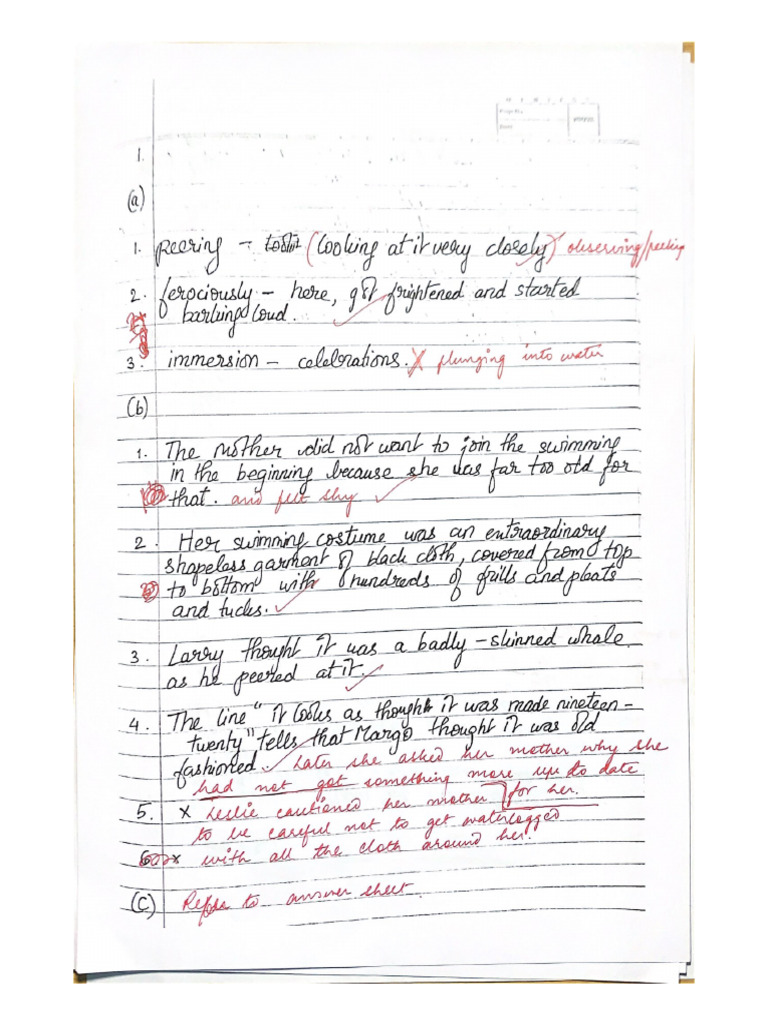 1.
(a)
1. peering – (looking at it very closely) observing/peeking
2. ferociously – here, got frightened and started
barking loud.
3. immersion – celebrations. x plunging into water
(b)
1. The mother did not want to join the swimming
in the beginning because she was far too old for
that. and felt shy
2. Her swimming costume was an entraordinary
shapeless garment of black cloth, covered from top
to bottom with hundreds of frills and pleats
and tucks.
3. Larry thought it was a badly-skinned whale
as he peered at it.
4. The line "it looks as though it was made nineteen-
twenty" tells that Margo thought it was old
fashioned. Later she asked her mother why she
had not got something more up to date
for her.
5. x Leslie cautioned her mother
to be careful not to get waterlogged
x with all the cloth around her.
(C) Refer to answer sheet